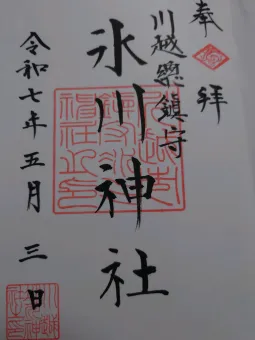 奉拝
川越総鎮守
氷川神社
令和七年五月三日